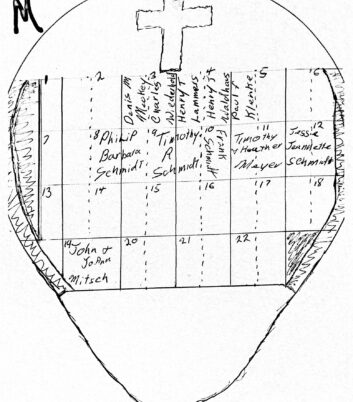 M
1
2
Denis M
Meokey
Charles
Niederhold
Henry J
Lammers
Henry J +
Paul F
Klenke
5
6
7
8 Philip
Barbara
Schmidt
9 Timothy
R
Schmidt
10
Frank
Schmidt
11
Timothy
+ Heather
Meyer
12
Jesse
Jeannette
Schmidt
13
14
15
16
17
18
19 John +
JoAnn
Mitsch
20
21
22